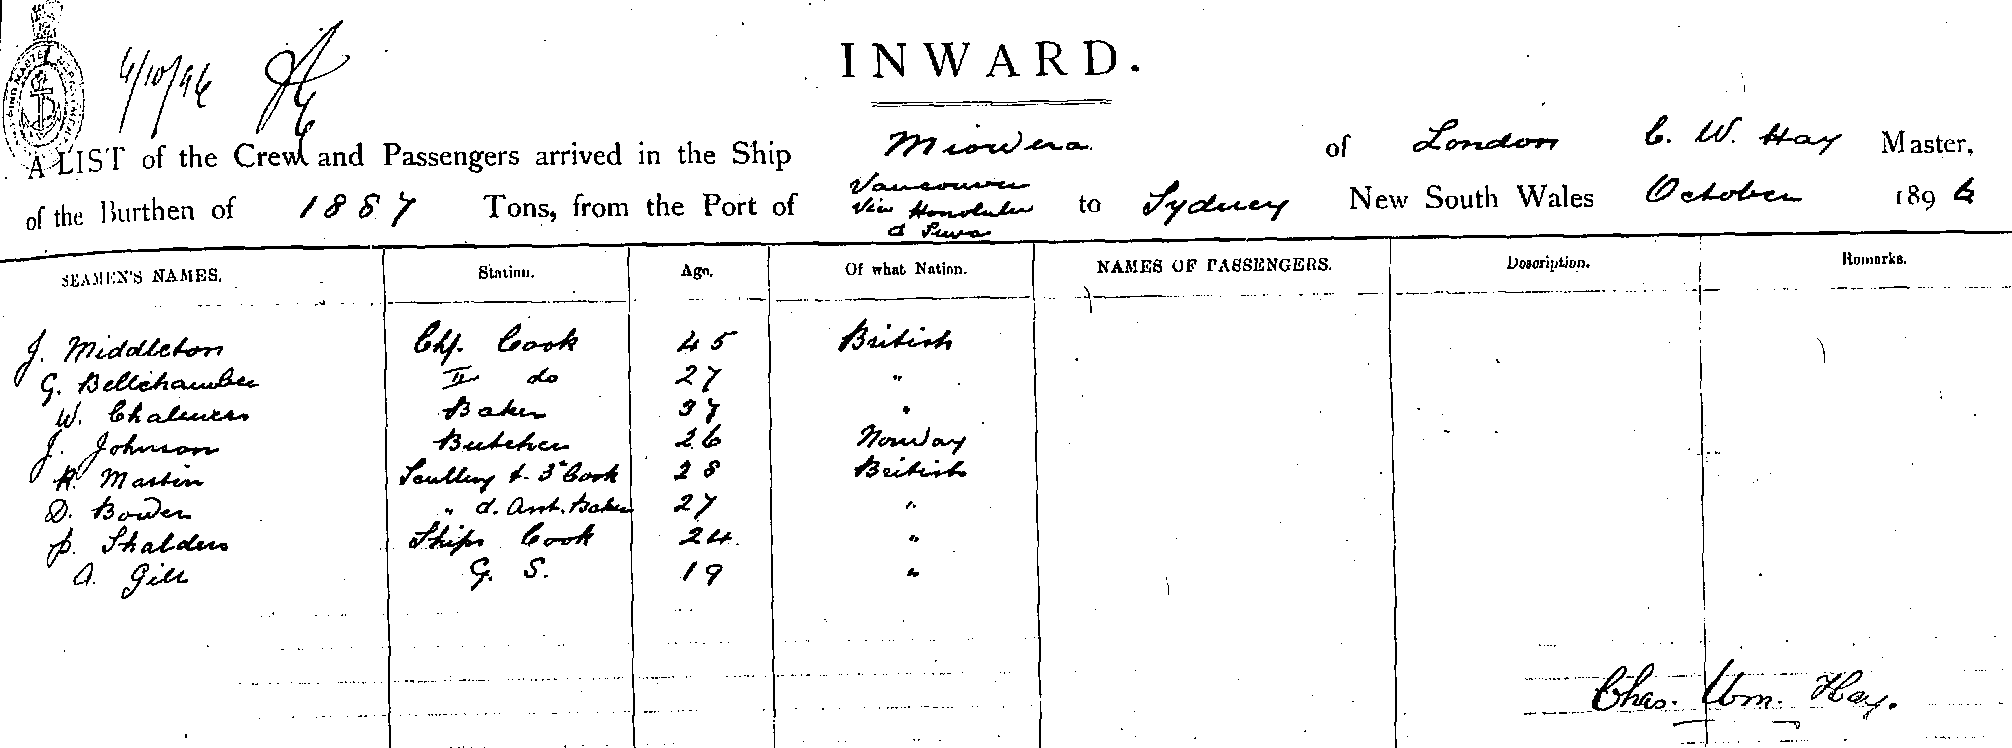 6/10/96
INWARD.
A LIST of the Crew and Passengers arrived in the Ship Miowera of London C. W. Hay Master,
of the Burthen of 1887 Tons, from the Port of Vancouver Via Honolulu & Suva to Sydney New South Wales October 1896
SEAMEN'S NAMES. Station. Age. Of what Nation. NAMES OF PASSENGERS. Description. Remarks.
J. Middleton Chf. Cook 45 British
G. Bellchamber II do 27 "
W. Chalmers Baker 37 "
J. Johnson Butcher 26 Norway
R. Martin Scullery & 3rd Cook 28 British
D. Bowen " & Asst. Baker 27 "
P. Shalders Ships Cook 24 "
A. Gill G. S. 19 "
Chas. Wm. Hay.